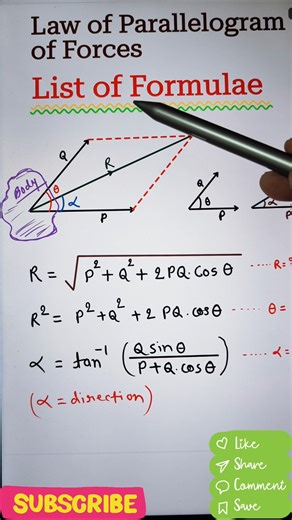 Law of Parallelogram
of Forces
List of Formulae
Body
Q
R
θ
α
P
Q
θ
P
α
R = √(P² + Q² + 2PQ.Cosθ) ---- R=
R² = P² + Q² + 2PQ.cosθ ---- θ =
α = tan⁻¹ (Q sinθ / P+Q.cosθ) ---- α =
(α = direction)
SUBSCRIBE
Like
Share
Comment
Save